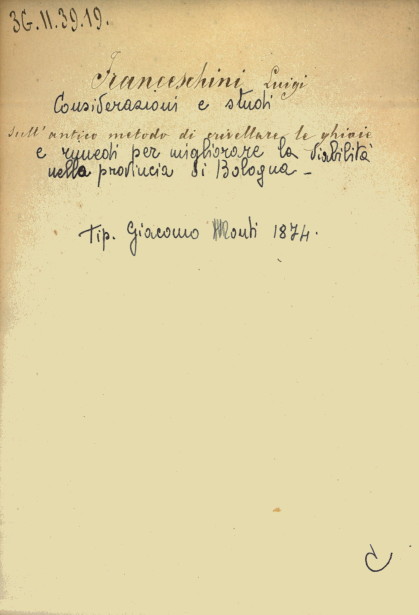 3G.II.39.19.
Franceschini Luigi
Considerazioni e studi
sull'antico metodo di crivellare le ghiaie
e rimedi per migliorare la viabilità
nella provincia di Bologna -
Tip. Giacomo Monti 1874.